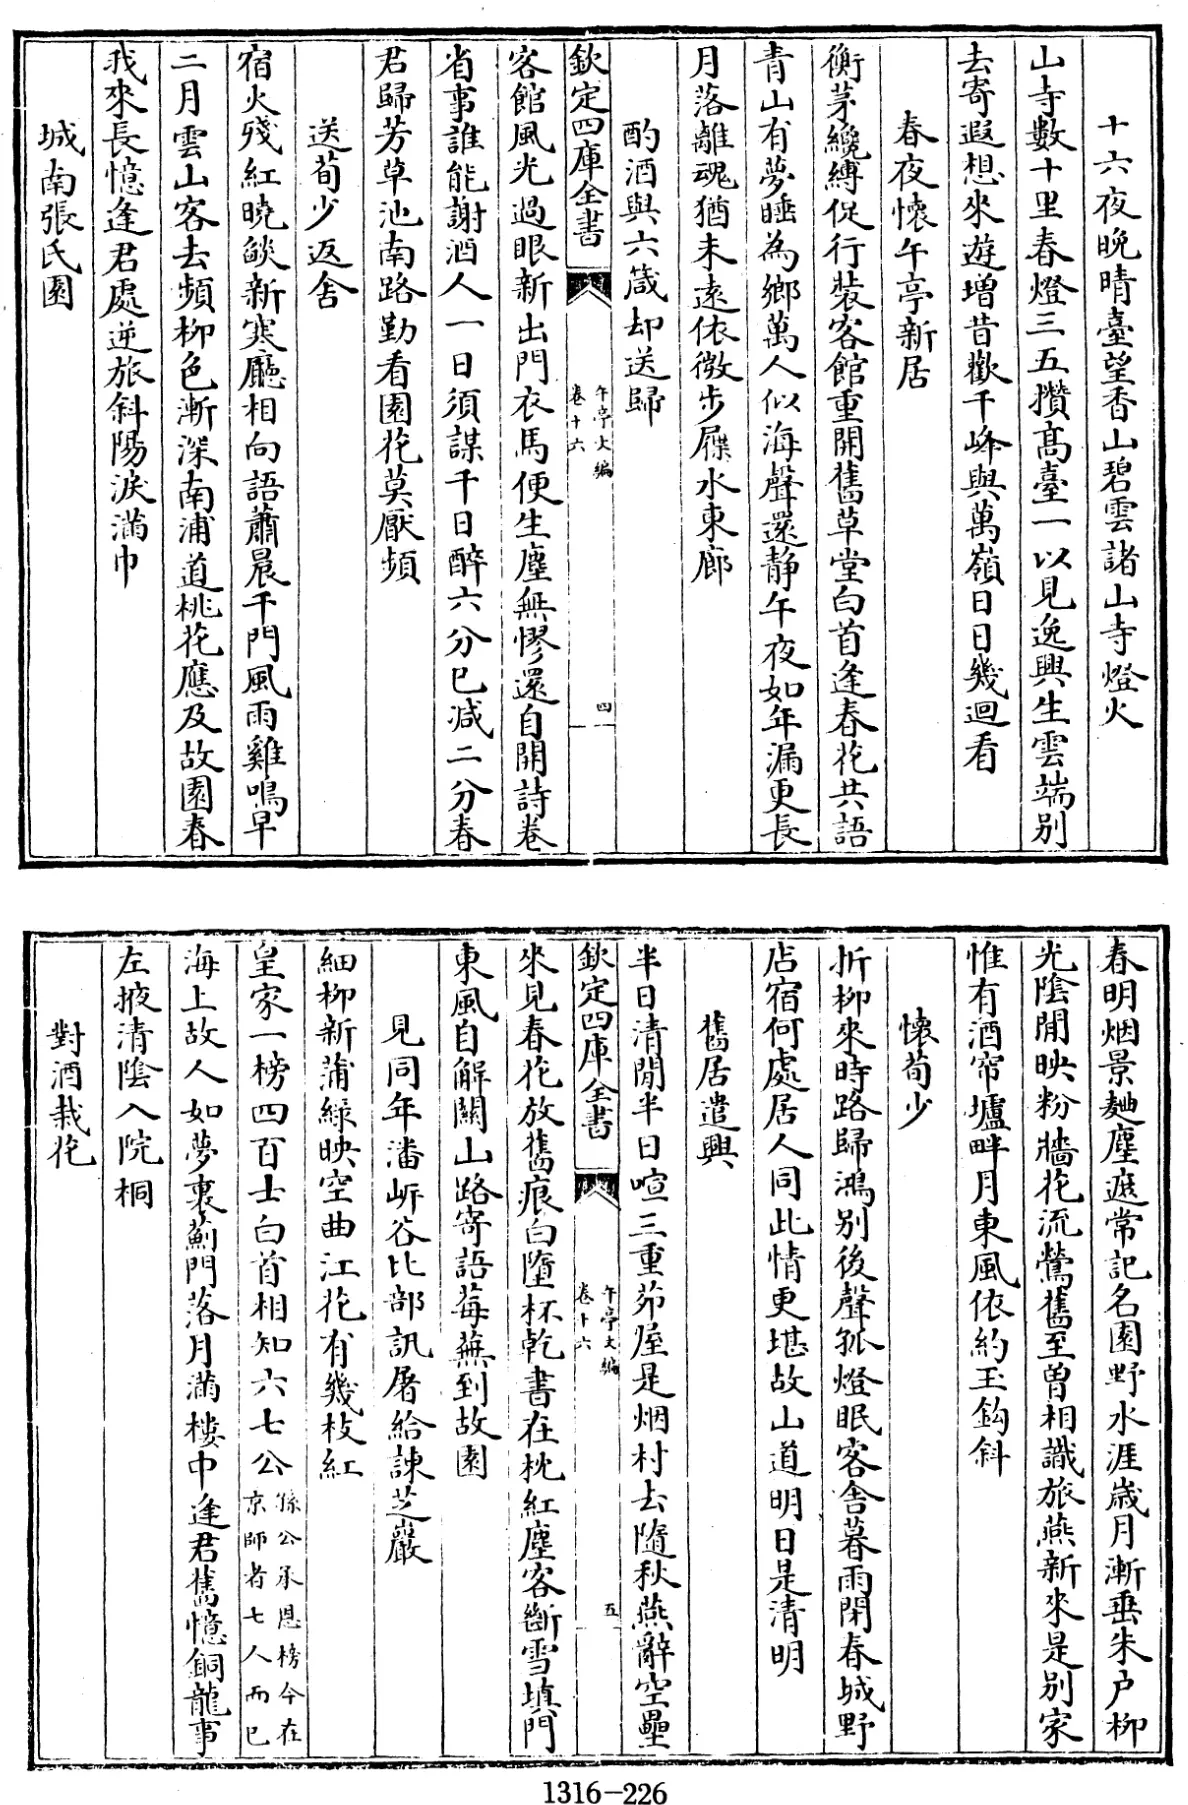 十六夜晚晴臺望香山碧雲諸山寺燈火
山寺數十里春燈三五攢高臺一以見逸興生雲端别
去寄遐想來遊增昔歡千峰與萬嶺日日幾迴看
春夜懷午亭新居
衡茅纔縛促行裝客館重開舊草堂白首逢春花共語
青山有夢睡為鄉萬人似海聲還静午夜如年漏更長
月落離魂猶未遠依微步屧水東廊
酌酒與六箴却送歸
欽定四庫全書
午亭文編
卷十六
四
客館風光過眼新出門衣馬便生塵無憀還自開詩卷
省事誰能謝酒人一日須謀千日醉六分已减二分春
君歸芳草池南路勤看園花莫厭頻
送荀少返舍
宿火殘紅曉燄新寒廳相向語蕭晨千門風雨雞鳴早
二月雲山客去頻柳色漸深南浦道桃花應及故園春
我來長憶逢君處逆旅斜陽淚滿巾
城南張氏園
春明烟景麯塵遮常記名園野水涯歲月漸垂朱户柳
光陰閒映粉牆花流鶯舊至曽相識旅燕新來是别家
惟有酒帘壚畔月東風依約玉鈎斜
懷荀少
折柳來時路歸鴻别後聲孤燈眠客舍暮雨閉春城野
店宿何處居人同此情更堪故山道明日是清明
舊居遣興
半日清閒半日喧三重茆屋是烟村去隨秋燕辭空壘
欽定四庫全書
午亭文編
卷十六
五
來見春花放舊痕白墮杯乾書在枕紅塵客斷雪填門
東風自解關山路寄語蘼蕪到故園
見同年潘岍谷比部訊屠給諫芝巖
細柳新蒲緑映空曲江花有幾枝紅
皇家一榜四百士白首相知六七公孫公承恩榜今在京師者七人而已
海上故人如夢裏薊門落月滿樓中逢君舊憶銅龍事
左掖清陰入院桐
對酒栽花
1316-226